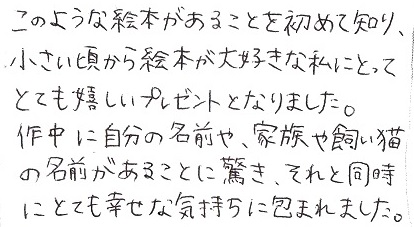 このような絵本があることを初めて知り、
小さい頃から絵本が大好きな私にとって
とても嬉しいプレゼントとなりました。
作中に自分の名前や、家族や飼い猫
の名前があることに驚き、それと同時
にとても幸せな気持ちに包まれました。